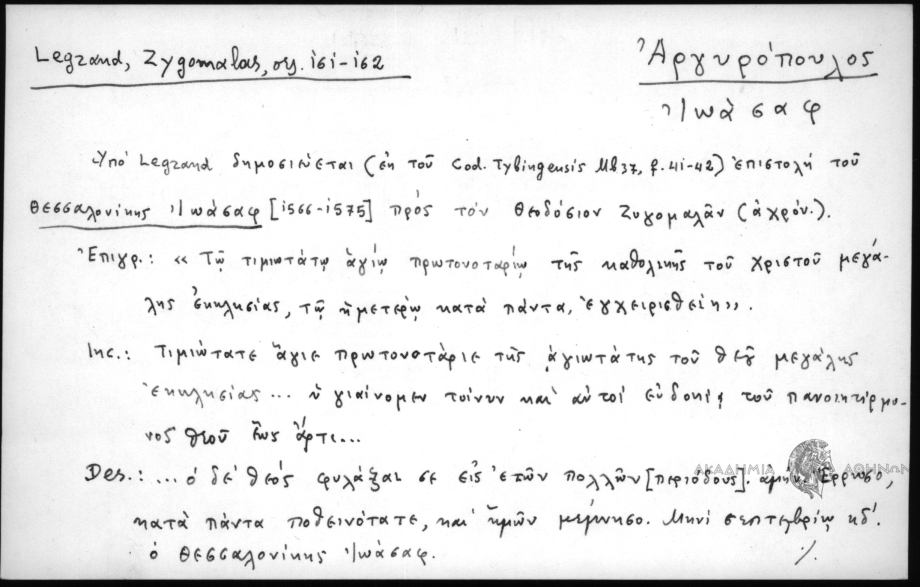 Legrand, Zygomalas, σσ. 161-162
Ἀργυρόπουλος
Ἰωάσαφ
Ὑπό Legrand δημοσιεύεται (ἐκ τοῦ Cod. Tybingensis Mb37, f. 41-42) ἐπιστολή τοῦ
Θεσσαλονίκης Ἰωάσαφ [1566-1575] πρός τόν Θεοδόσιον Ζυγομαλᾶν (ἀχρόν.).
Ἐπιγρ.: « Τῷ τιμιωτάτῳ ἁγίῳ πρωτονοταρίῳ τῆς καθολικῆς τοῦ Χριστοῦ μεγά-
λης ἐκκλησίας, τῷ ἡμετέρῳ κατὰ πάντα, ἐγχειρισθείη».
Inc.: Τιμιώτατε ἅγιε πρωτονοτάριε τῆς ἁγιωτάτης τοῦ θεοῦ μεγάλης
ἐκκλησίας... ὑγιαίνομεν τοίνυν καὶ αὐτοί εὐδοκίᾳ τοῦ πανοικτίρμο-
νος θεοῦ ἕως ἄρτι...
Des.: ... ὁ δέ θεός φυλάξαι σε εἰς ἐτῶν πολλῶν [περιόδους]. ἀμήν. Ἔρρωσο,
κατὰ πάντα ποθεινότατε, καί ἡμῶν μέμνησο. Μηνί σεπτεβρίῳ κδ΄.
ὁ Θεσσαλονίκης Ἰωάσαφ.
./.
ΑΚΑΔΗΜΙΑ ΑΘΗΝΩΝ